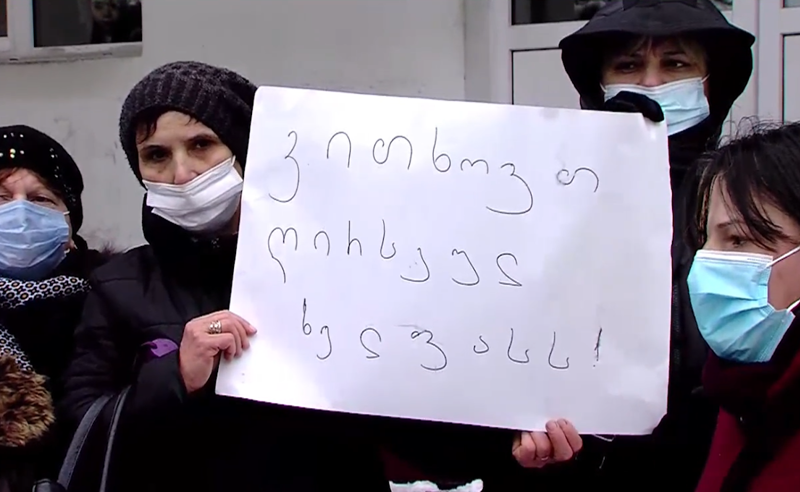 ვითხოვთ
ღირსეულ
ხელფასს!